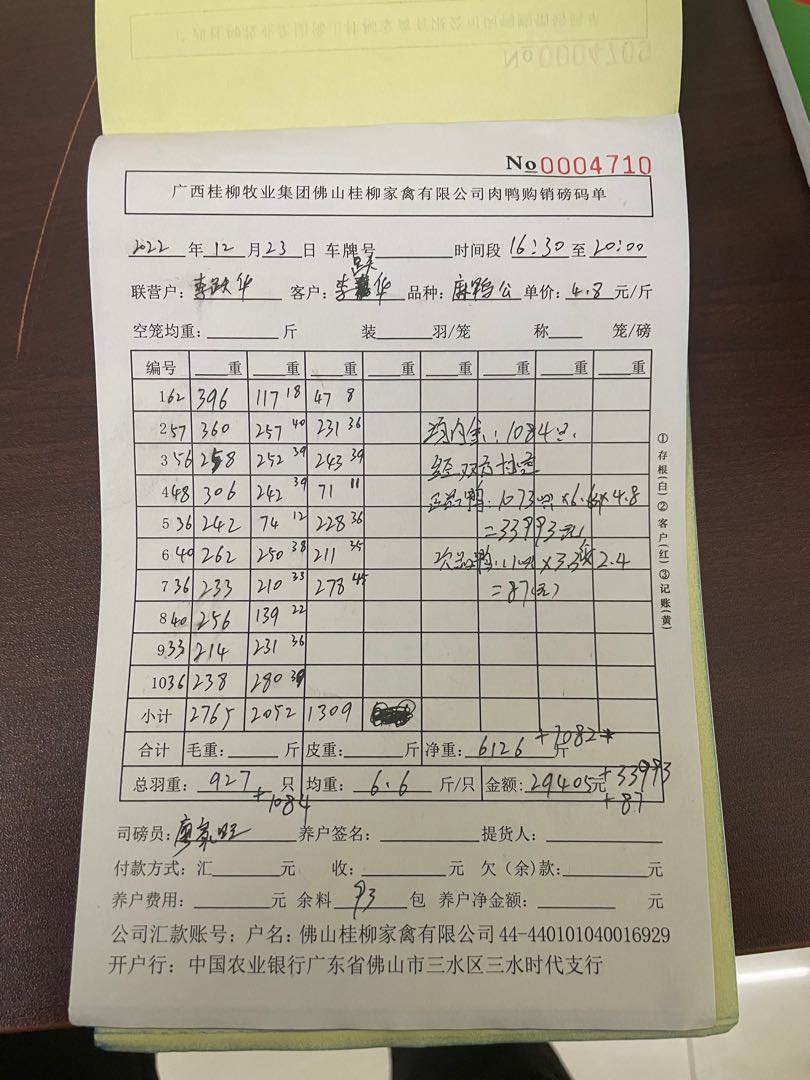 No 0004710
广西桂柳牧业集团佛山桂柳家禽有限公司肉鸭购销磅码单
2022 年 12 月 23 日 车牌号 时间段 16:30 至 20:00
联营户: 李跃华 客户: 李华 品种: 麻鸭公 单价: 4.8 元/斤
空笼均重: 斤 装 羽/笼 称 笼/磅
编号 重 重 重 重 重 重 重 重
1 62 396 117 18 47 8
2 57 360 257 40 231 36 1084只
3 56 258 252 39 243 39 经双方
4 48 306 242 39 71 11 正品鸭: 1073只×6.6×4.8
5 36 242 74 12 228 36 =33993元
6 40 262 250 38 211 35 次品鸭: 11只×3.3 2.4
7 36 233 210 33 278 45 =87(元)
8 40 256 139 22
9 33 214 231 36
10 36 238 280 39
小计 2765 2052 1309
合计 毛重: 斤 皮重: 斤 净重: 6126 斤 +7082
总羽重: 927 只 均重: 6.6 斤/只 金额: 29405元+33993
+1084 +87
司磅员: 养户签名: 提货人:
付款方式: 汇 元 收: 元 欠(余)款: 元
养户费用: 元 余料 93 包 养户净金额: 元
公司汇款账号: 户名: 佛山桂柳家禽有限公司 44-440101040016929
开户行: 中国农业银行广东省佛山市三水区三水时代支行
①存根(白)②客户(红)③记账(黄)